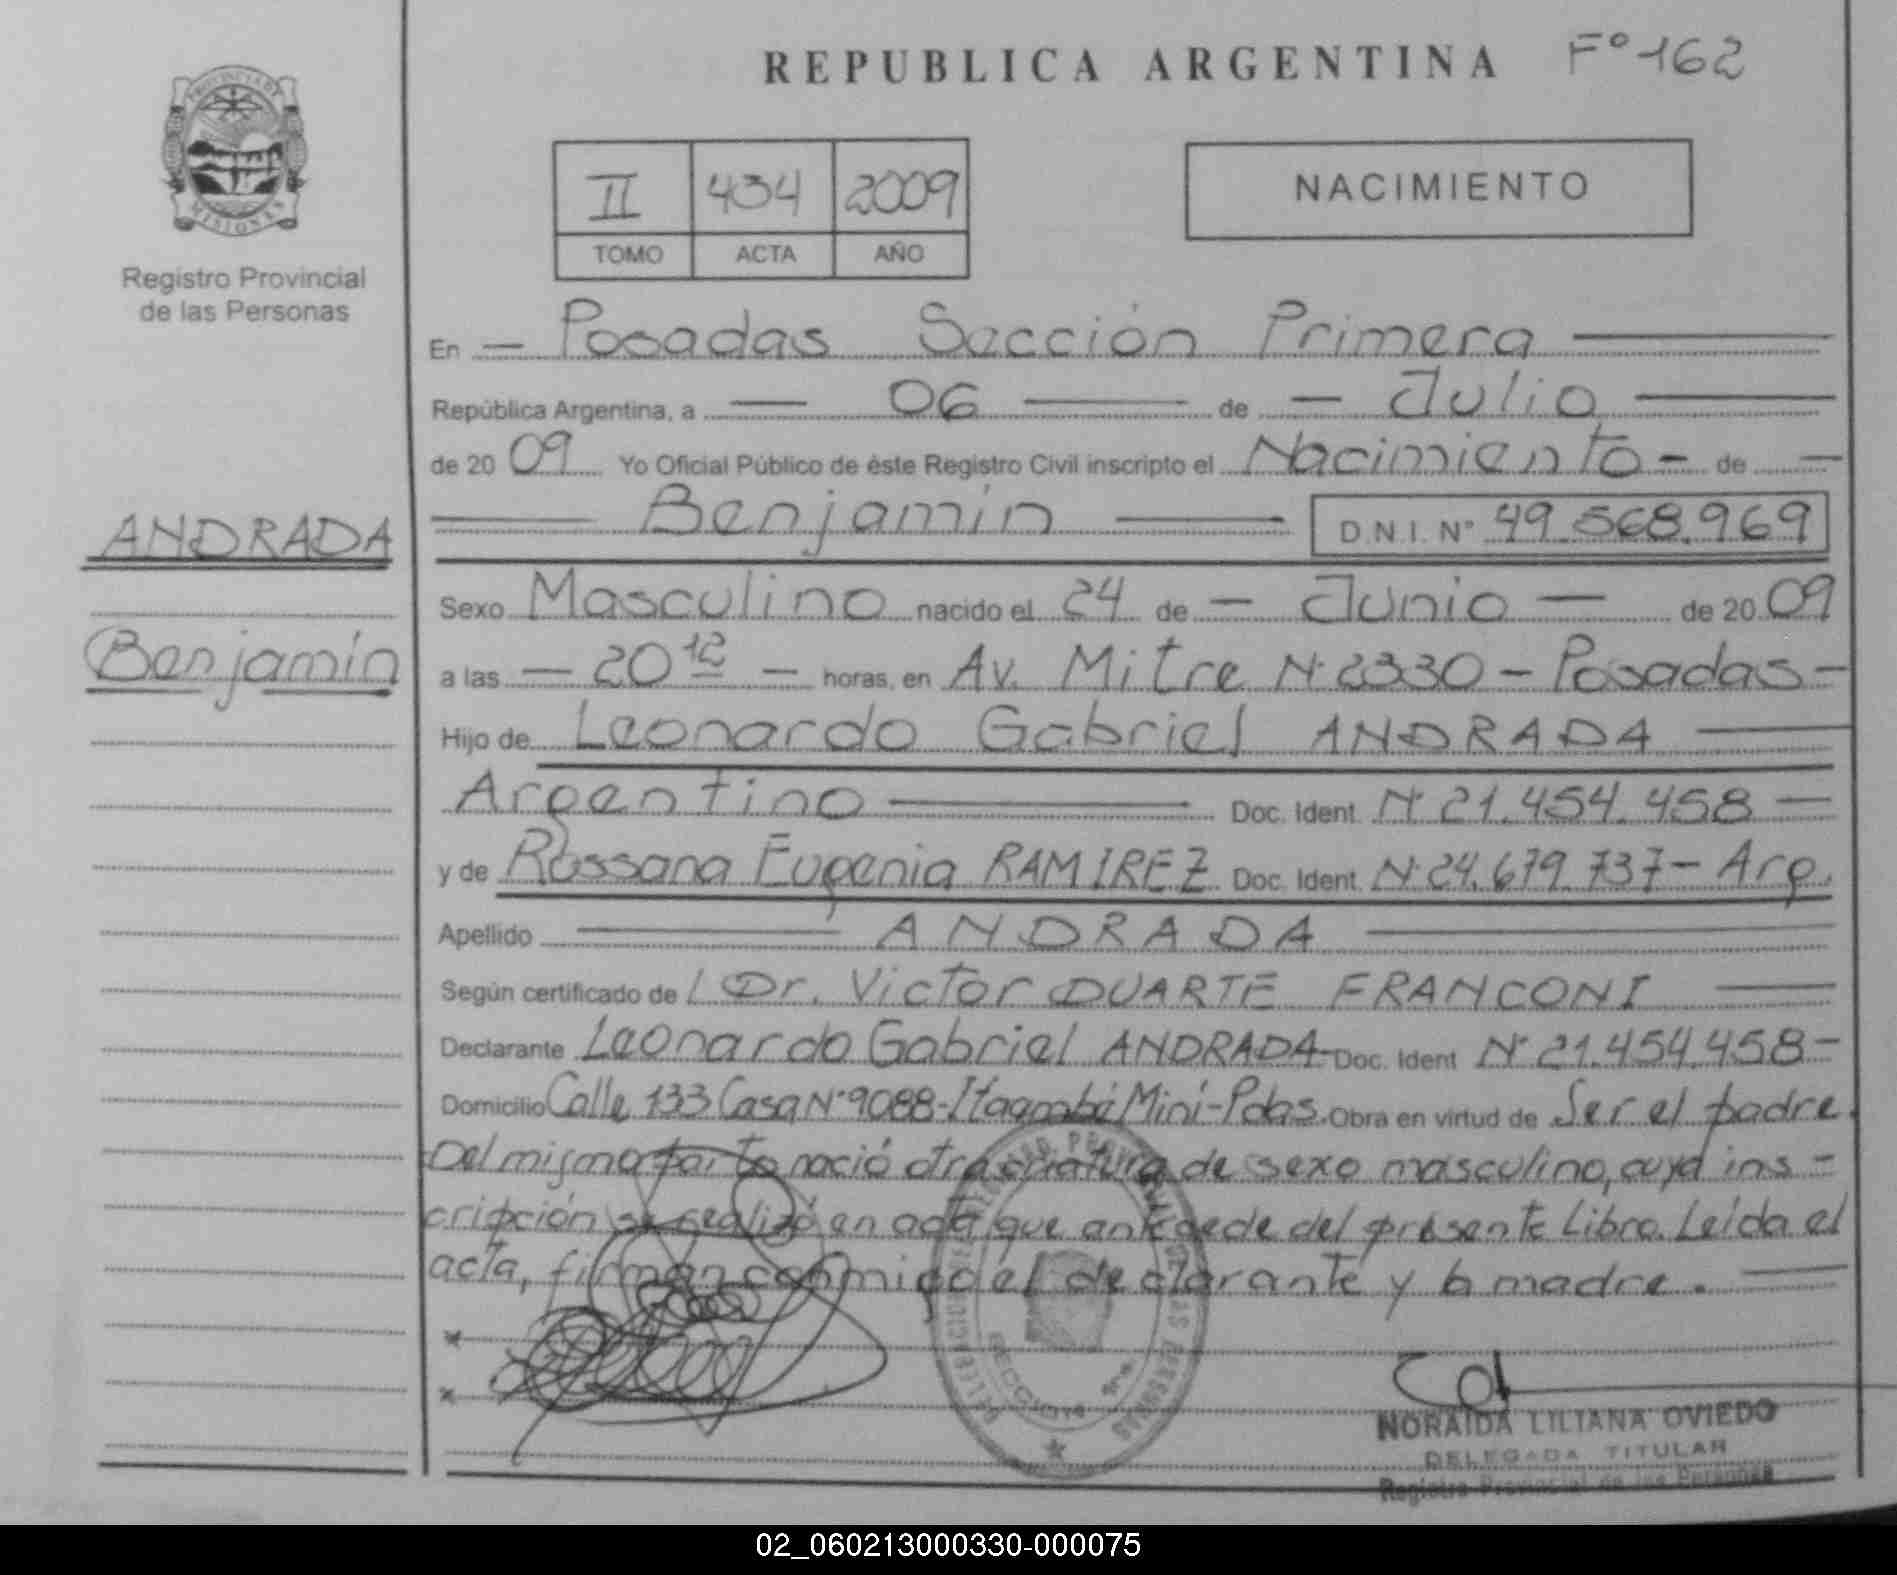 REPUBLICA ARGENTINA Fº 162
PROVINCIA DE
MISIONES
Registro Provincial
de las Personas
II 434 2009
TOMO ACTA AÑO
NACIMIENTO
En — Posadas Sección Primera —
República Argentina, a — 06 — de — Julio —
de 20 09 Yo Oficial Público de éste Registro Civil inscripto el Nacimiento - de —
ANDRADA
Benjamín
— Benjamín — D.N.I. Nº 49.568.969
Sexo Masculino nacido el 24 de — Junio — de 20 09
a las — 20 12 — horas, en Av. Mitre Nº 2330 - Posadas -
Hijo de Leonardo Gabriel ANDRADA —
Argentino — Doc. Ident. Nº 21.454.458 —
y de Rossana Eugenia RAMIREZ Doc. Ident. Nº 24.679.737 - Arg.
Apellido — ANDRADA —
Según certificado de / Dr. Victor DUARTE FRANCONI —
Declarante Leonardo Gabriel ANDRADA - Doc. Ident Nº 21.454.458 -
Domicilio Calle 133 Casa Nº 9088 - Itaembé Miní - Pdas. Obra en virtud de Ser el padre.
Del mismo parto nació otra criatura de sexo masculino, cuya ins -
cripción se realizó en acta que antecede del presente Libro. Leída el
acta, firman conmigo el declarante y la madre. —
NORAIDA LILIANA OVIEDO
DELEGADA TITULAR
Registro Provincial de las Personas
02_060213000330-000075